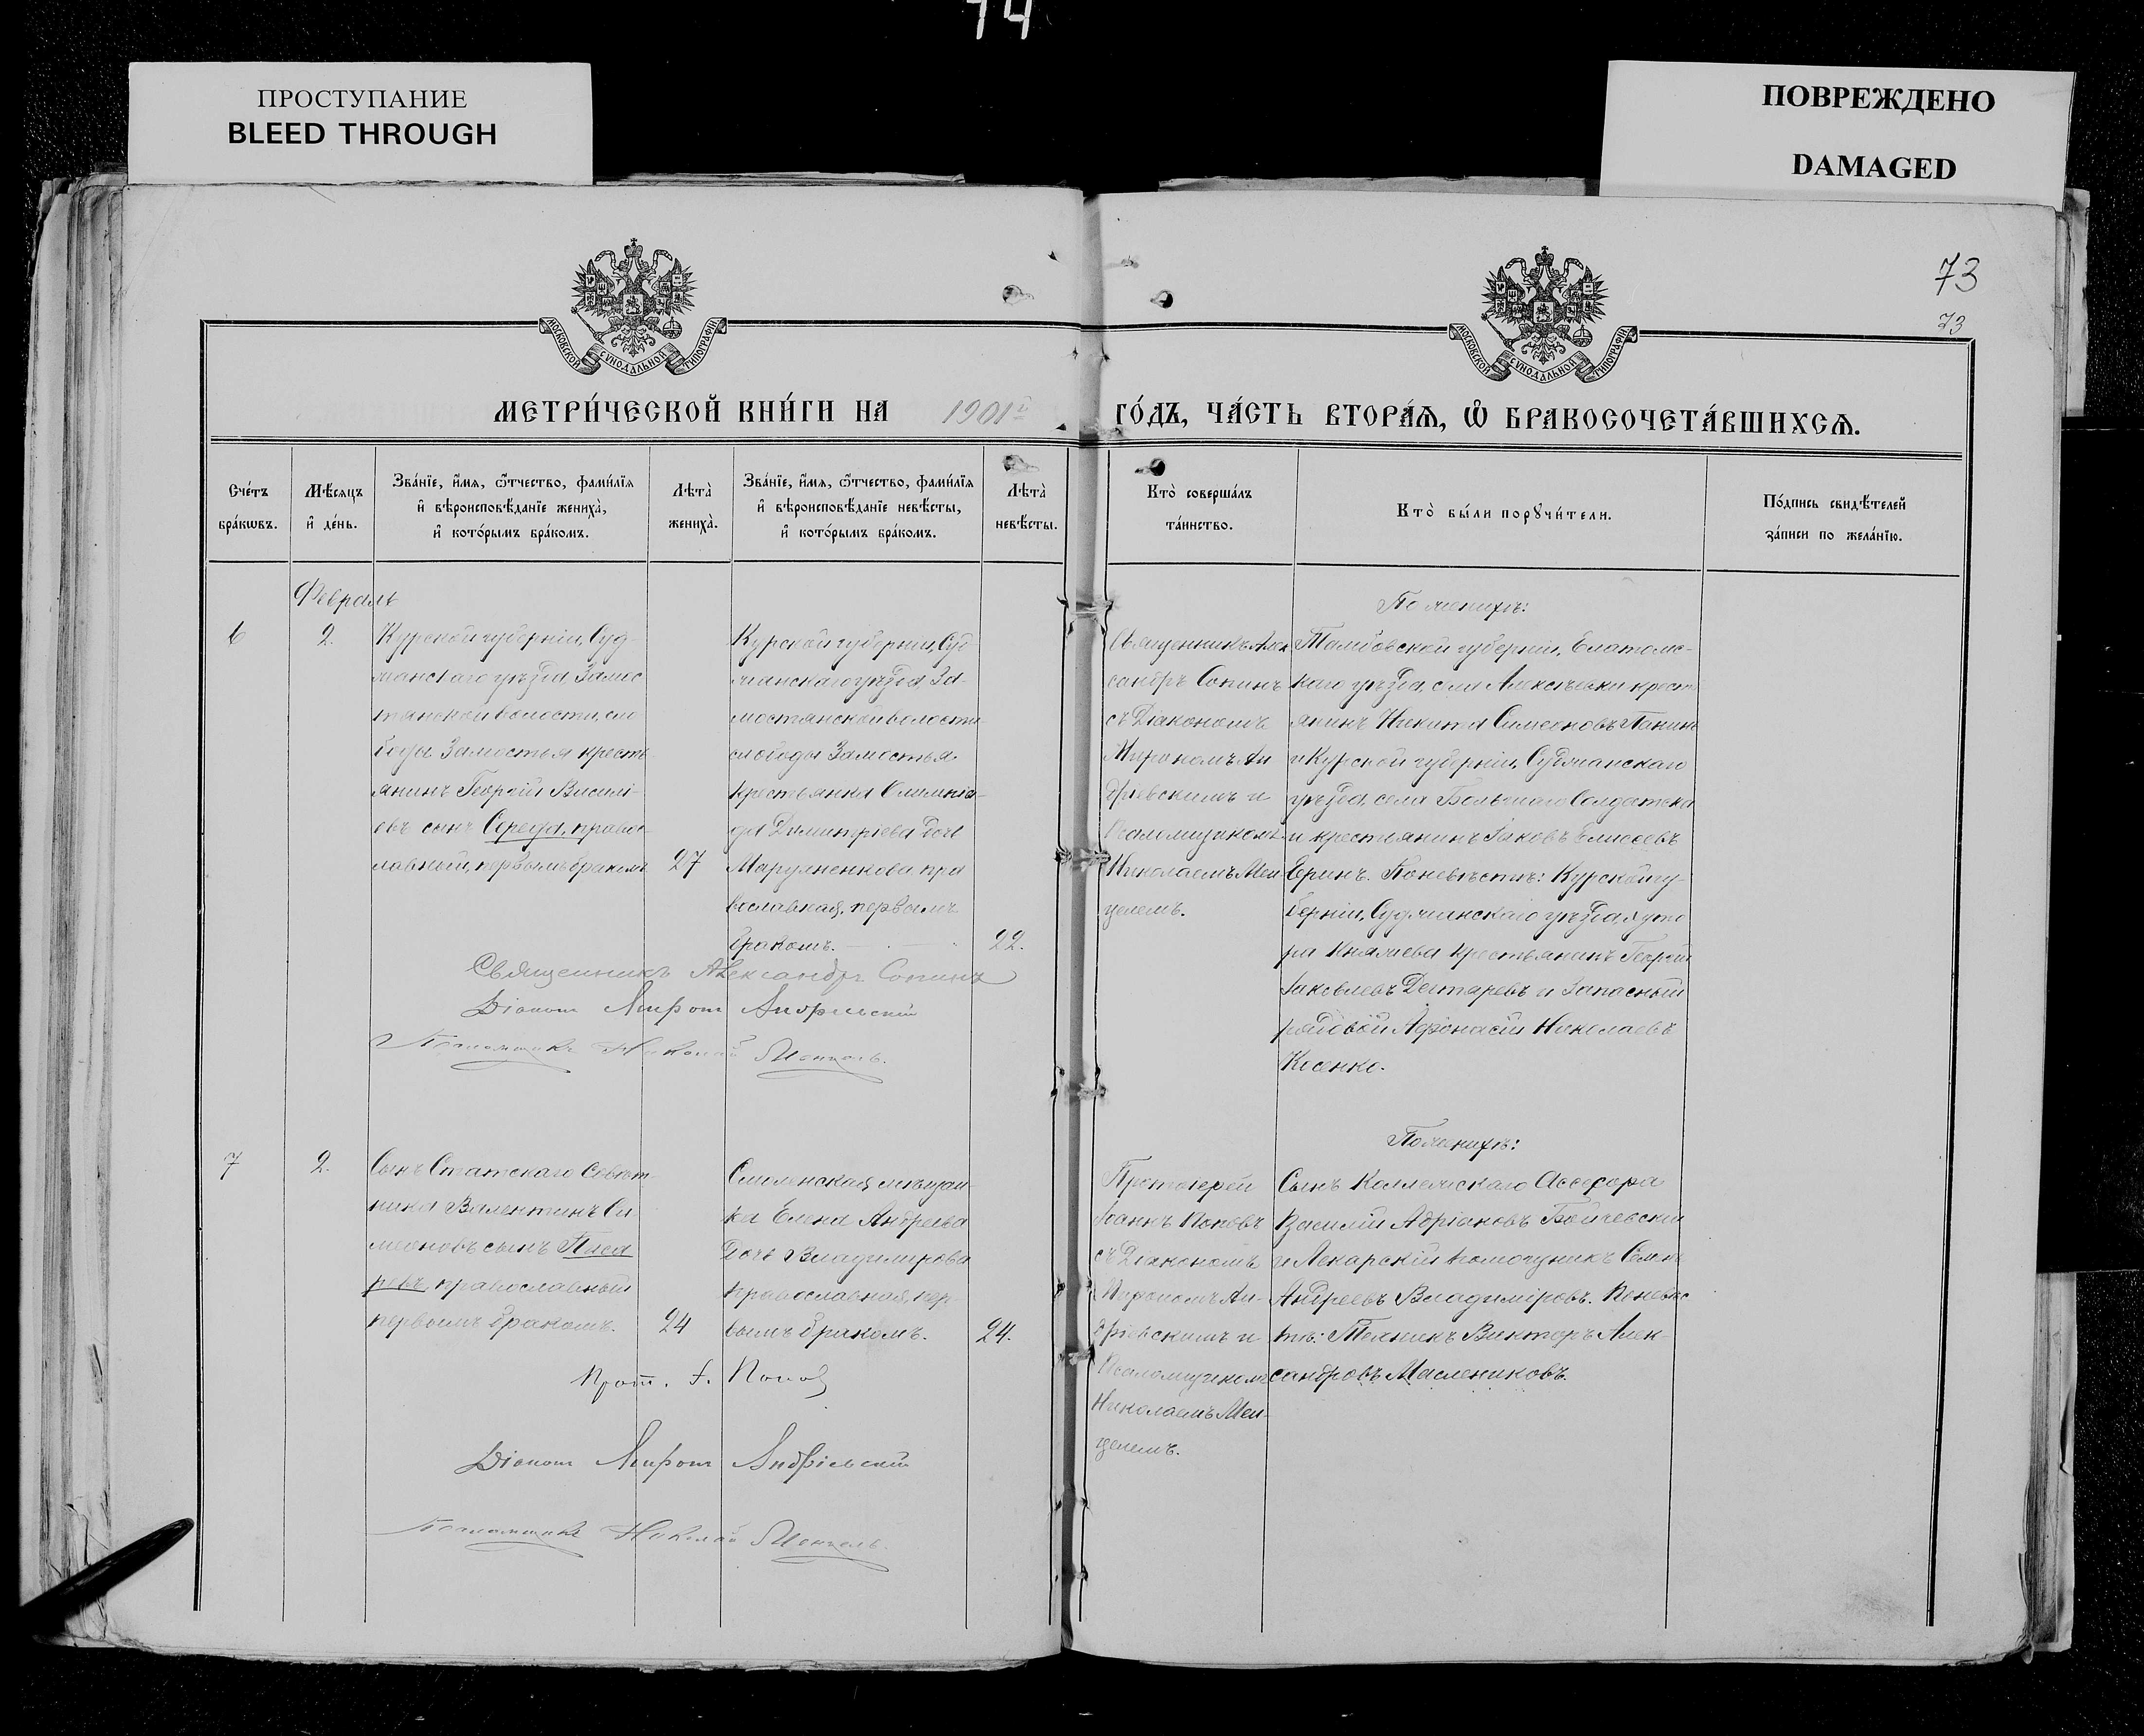 74
ПРОСТУПАНИЕ
BLEED THROUGH
ПОВРЕЖДЕНО
DAMAGED
73
73
МОСКОВСКОЙ СѴНОДАЛЬНОЙ ТИПОГРАФІИ
МОСКОВСКОЙ СѴНОДАЛЬНОЙ ТИПОГРАФІИ
МЕТРИ́ЧЕСКОЙ КНИ́ГИ НА 1901й ГО́ДЪ, ЧА́СТЬ ВТОРА́Ѧ, Ѽ БРАКОСОЧЕТА́ВШИХСѦ.
Сче́тъ
бра́кѡвъ.
Мѣ́сѧцъ
и҆ де́нь.
Зва́нїе, и҆́мѧ, ѻ҆́тчество, фами́лїѧ
и҆ вѣроисповѣ́данїе жениха̀,
и҆ кото́рымъ бра́комъ.
Лѣта̀
жениха̀.
Зва́нїе, и҆́мѧ, ѻ҆́тчество, фами́лїѧ
и҆ вѣроисповѣ́данїе невѣ́сты,
и҆ кото́рымъ бра́комъ.
Лѣта̀
невѣ́сты.
Кто̀ соверша́лъ
та́инство.
Кто̀ бы́ли порꙋчи́тели.
По́дпись свидѣ́телей
за́писи по жела́нїю.
Февраль
6
2.
Курской губерніи, Суд-
жанскаго уѣзда, Замос
тянской волости, сло
боды Замостья кресть
янинъ Георгій Василі-
евъ сынъ Середа, правос-
лавный, первымъ бракомъ
27
Курской губерніи, Суд
жанскаго уѣзда, За-
мостянской волости
слободы Замостья
крестьянка Олимпіа-
да Димитріева дочь
пра
вославная, первымъ
бракомъ.
22.
Священникъ Алек
сандръ Сопинъ
съ Діакономъ
Мирономъ Ан
дріевскимъ и
Псаломщикомъ
Николаемъ Мен-
целемъ.
По женихѣ:
Тамбовской губерніи, Елатомс-
каго уѣзда, села Алексѣевки крест
янинъ Никита Симеоновъ Панинъ
и Курской губерніи, Суджанскаго
уѣзда, села Большаго Солдатска
и крестьянинъ Іаковъ Елисеевъ
Еринъ. По невѣстѣ: Курской гу-
берніи, Суджанскаго уѣзда, хуто
ра крестьянинъ Георгій
Іаковлевъ Дегтяревъ и Запасный
рядовой Афонасій Николаевъ
Косенко.
Священникъ Александръ Сопинъ
Діаконъ Миронъ Андріевскій
Псаломщикъ Николай Менцель.
7
2.
Сынъ Статскаго Совѣт-
ника Валентинъ Си
меоновъ сынъ Писа
ревъ, православный
первымъ бракомъ.
24
Смоленская мѣщан-
ка Елена Андреева
дочь Владимирова
православная, пер-
вымъ бракомъ.
24.
Протоіерей
Іоаннъ Поповъ
съ Діакономъ
Мирономъ Ан-
дріевскимъ и
Псаломщикомъ
Николаемъ Мен-
целемъ.
По женихѣ:
Сынъ Коллежскаго Ассесора
Василій Адріановъ
и Лекарскій помощникъ Семенъ
Андреевъ Владиміровъ. По невѣс
тѣ: Техникъ Викторъ Алек-
сандровъ Маслениковъ.
Прот. І. Поповъ
Діаконъ Миронъ Андріевскій
Псаломщикъ Николай Менцель.